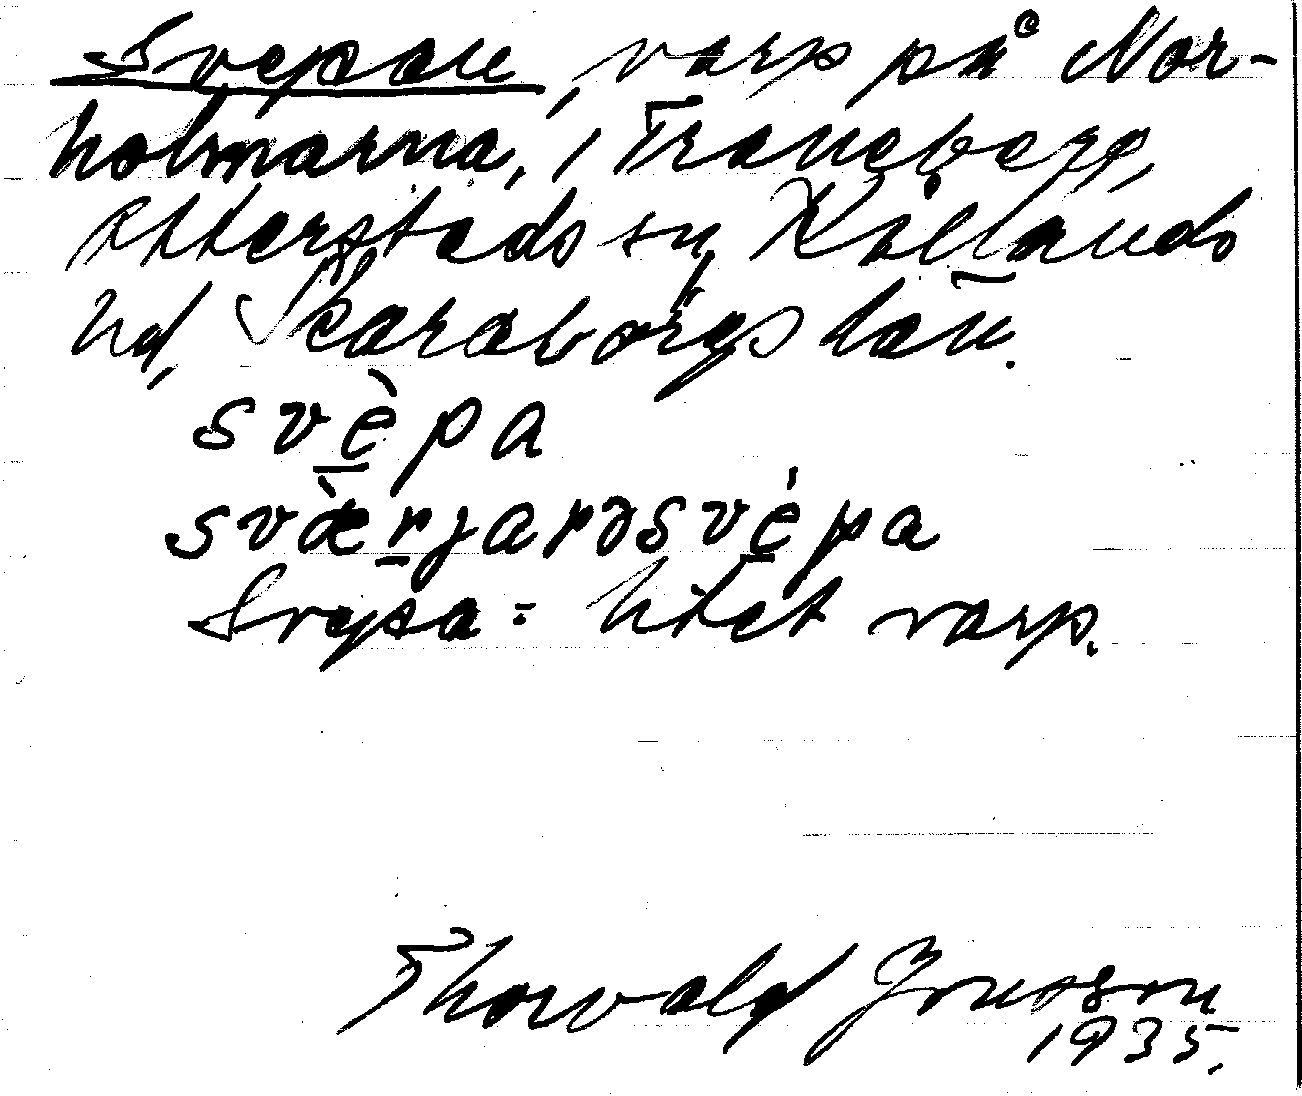 Svepan, varp på Nor-
holmarna, i Traneberg,
Otterstads sn, Kållands
hd, Skaraborgs län.
svèpa
svæ̀rjarəsvèpa
Svepa = litet varp.
Thorvald Jonsson
1935.